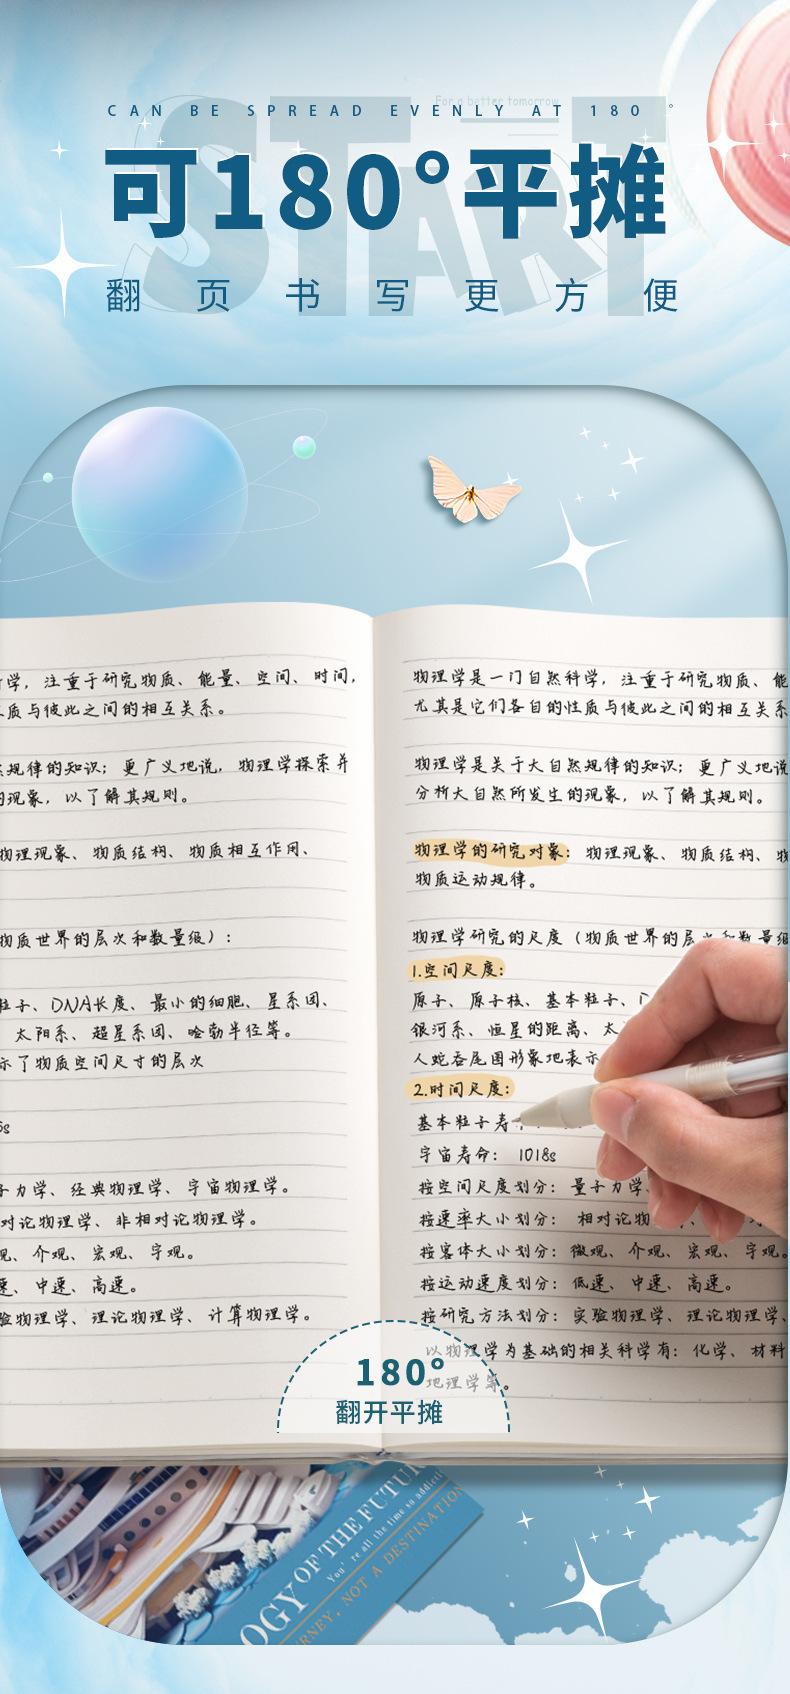 For a better tomorrow
CAN BE SPREAD EVENLY AT 180°
START
可180°平摊
翻页书写更方便
学，注重于研究物质、能量、空间、时间，
质与彼此之间的相互关系。
规律的知识；更广义地说，物理学探索并
的现象，以了解其规则。
物理现象、物质结构、物质相互作用、
物质世界的层次和数量级）：
粒子、DNA长度、最小的细胞、星系团、
太阳系、超星系团、哈勃半径等。
示了物质空间尺寸的层次
s
子力学、经典物理学、宇宙物理学。
对论物理学、非相对论物理学。
观、介观、宏观、宇观。
速、中速、高速。
验物理学、理论物理学、计算物理学。
物理学是一门自然科学，注重于研究物质、能
尤其是它们各自的性质与彼此之间的相互关系
物理学是关于大自然规律的知识；更广义地说
分析大自然所发生的现象，以了解其规则。
物理学的研究对象：物理现象、物质结构、物
物质运动规律。
物理学研究的尺度（物质世界的层次和数量级
1.空间尺度：
原子、原子核、基本粒子、
银河系、恒星的距离、太
人蛇吞尾图形象地表示
2.时间尺度：
基本粒子寿
宇宙寿命： 1018s
按空间尺度划分：量子力学、
按速率大小划分：相对论物
按客体大小划分：微观、介观、宏观、宇观。
按运动速度划分：低速、中速、高速。
按研究方法划分：实验物理学、理论物理学、
以物理学为基础的相关科学有：化学、材料
地理学等。
180°
翻开平摊
OGY OF THE FUTUR
You're all the time so addicted
RNEY, NOT A DESTINATION